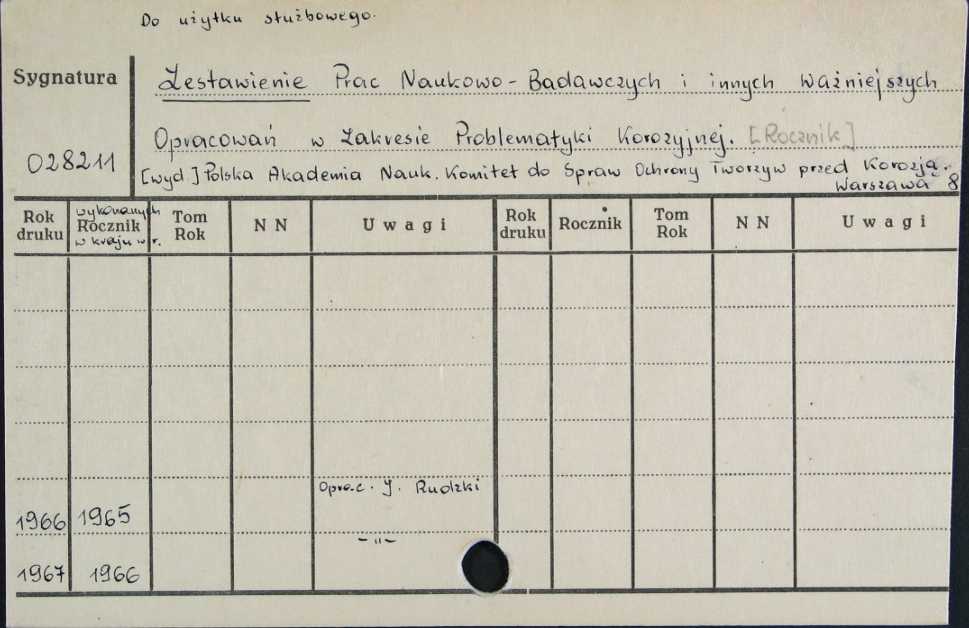 Do użytku służbowego.
Sygnatura
028211
Zestawienie Prac Naukowo-Badawczych i innych ważniejszych
Opracowań w zakresie Problematyki Korozyjnej. [Rocznik]
[wyd] Polska Akademia Nauk. Komitet do Spraw Ochrony Tworzyw przed Korozją.
Warszawa 8
Rok druku wykonanych Rocznik w kraju w r. Tom Rok N N Uwagi Rok druku Rocznik Tom Rok N N Uwagi
Oprac. J. Rudzki
1966 1965
-"-
1967 1966